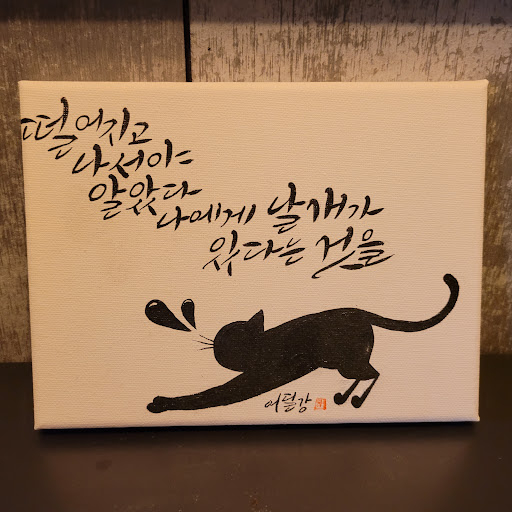 떨어지고
나서야
알았다
나에게 날개가
있다는 것을